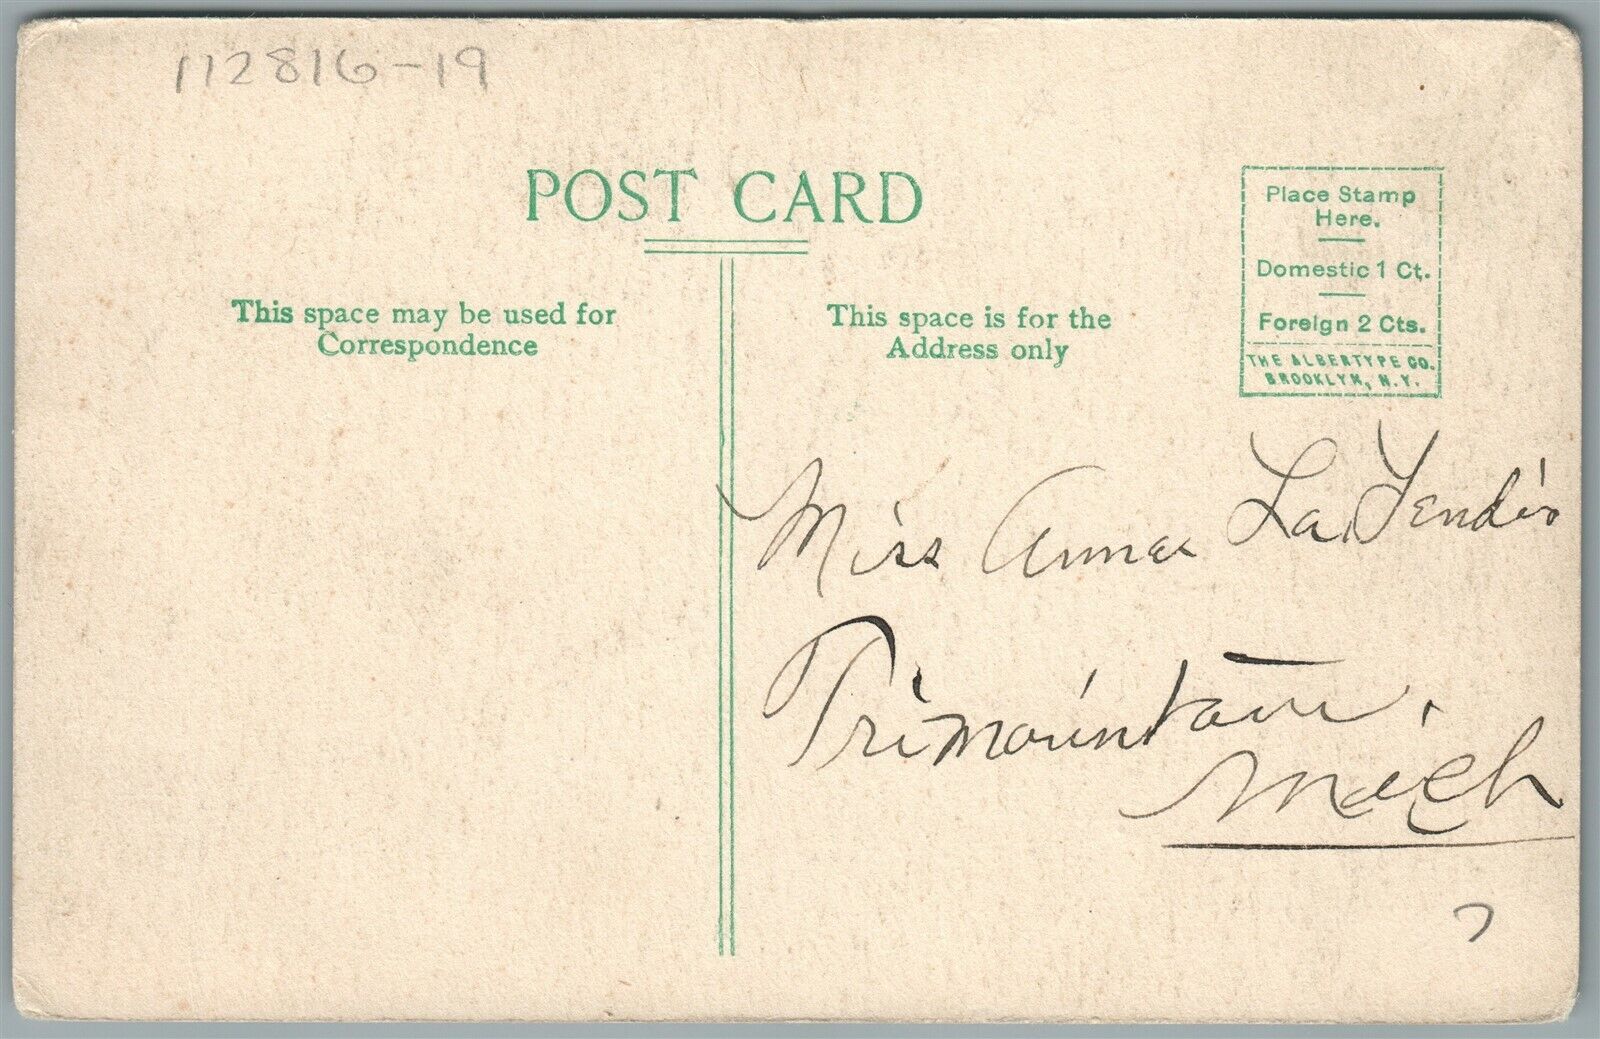 112816-19
POST CARD
This space may be used for
Correspondence
This space is for the
Address only
Place Stamp
Here.
Domestic 1 Ct.
Foreign 2 Cts.
THE ALBERTYPE CO.
BROOKLYN, N.Y.
Miss Anna La
Trimountain.
Mich
7